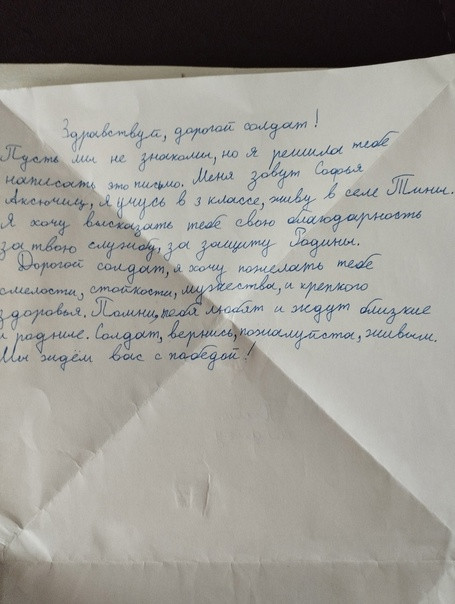 Здравствуй, дорогой солдат!
Пусть мы не знакомы, но я решила тебе
написать это письмо. Меня зовут Софья
Аксючиц, я учусь в 3 классе, живу в селе Тины.
Я хочу высказать тебе свою благодарность
за твою службу, за защиту Родины.
Дорогой солдат, я хочу пожелать тебе
смелости, стойкости, мужества, и крепкого
здоровья. Помни, тебя любят и ждут близкие
и родные. Солдат, вернись, пожалуйста, живым.
Мы ждём вас с победой!